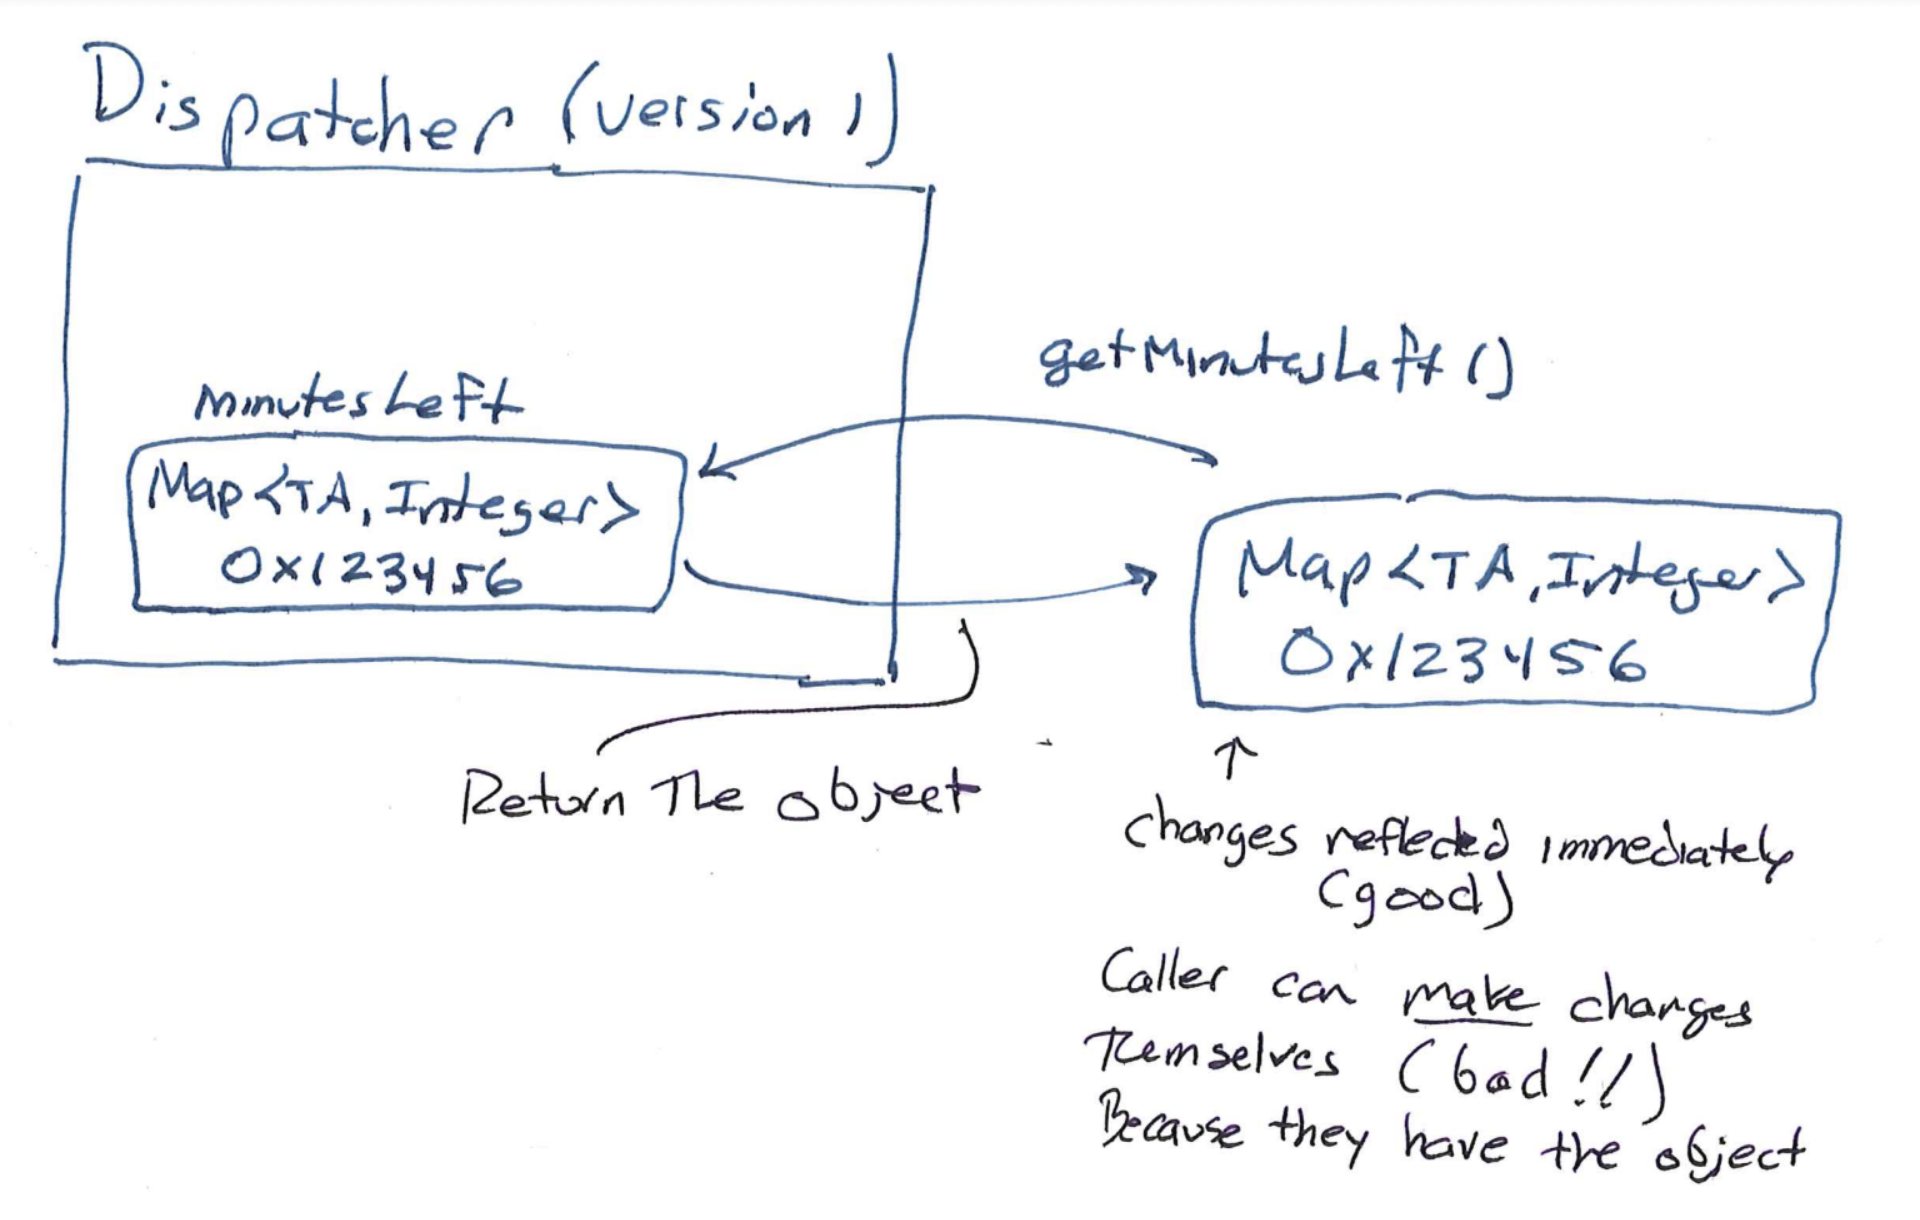 Dispatcher (version 1)
getMinutesLeft()
minutesLeft
Map<TA, Integer>
0x123456
Map<TA, Integer>
0x123456
Return The object
↑
changes reflected immediately
(good)
Caller can make changes
Themselves (bad!!)
Because they have the object